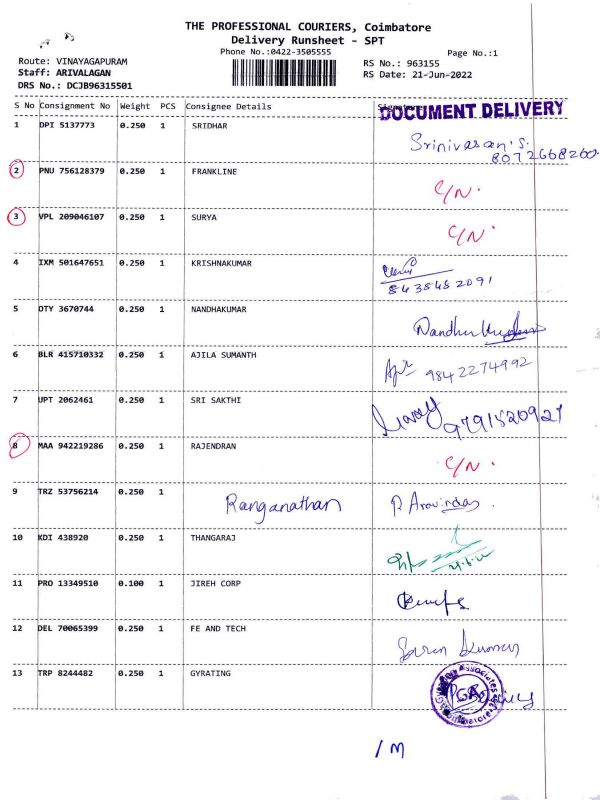 THE PROFESSIONAL COURIERS, Coimbatore
Delivery Runsheet - SPT
Phone No.:0422-3505555
Page No.:1
Route: VINAYAGAPURAM
RS No.: 963155
Staff: ARIVALAGAN
RS Date: 21-Jun-2022
DRS No.: DCJB96315501
S No Consignment No Weight PCS Consignee Details
DOCUMENT DELIVERY
1 DPI 5137773 0.250 1 SRIDHAR Srinivasan.S.
8072668260
2 PNU 756128379 0.250 1 FRANKLINE C/N.
3 VPL 209046107 0.250 1 SURYA C/N.
4 IXM 501647651 0.250 1 KRISHNAKUMAR
8438452091
5 OTY 3670744 0.250 1 NANDHAKUMAR
6 BLR 415710332 0.250 1 AJILA SUMANTH 9842274992
7 UPT 2062461 0.250 1 SRI SAKTHI 9791520927
8 MAA 942219286 0.250 1 RAJENDRAN C/N.
9 TRZ 53756214 0.250 1 Ranganathan P. Aravindas.
10 KDI 438920 0.250 1 THANGARAJ
11 PRO 13349510 0.100 1 JIREH CORP
12 DEL 70065399 0.250 1 FE AND TECH
13 TRP 8244482 0.250 1 GYRATING
1 M